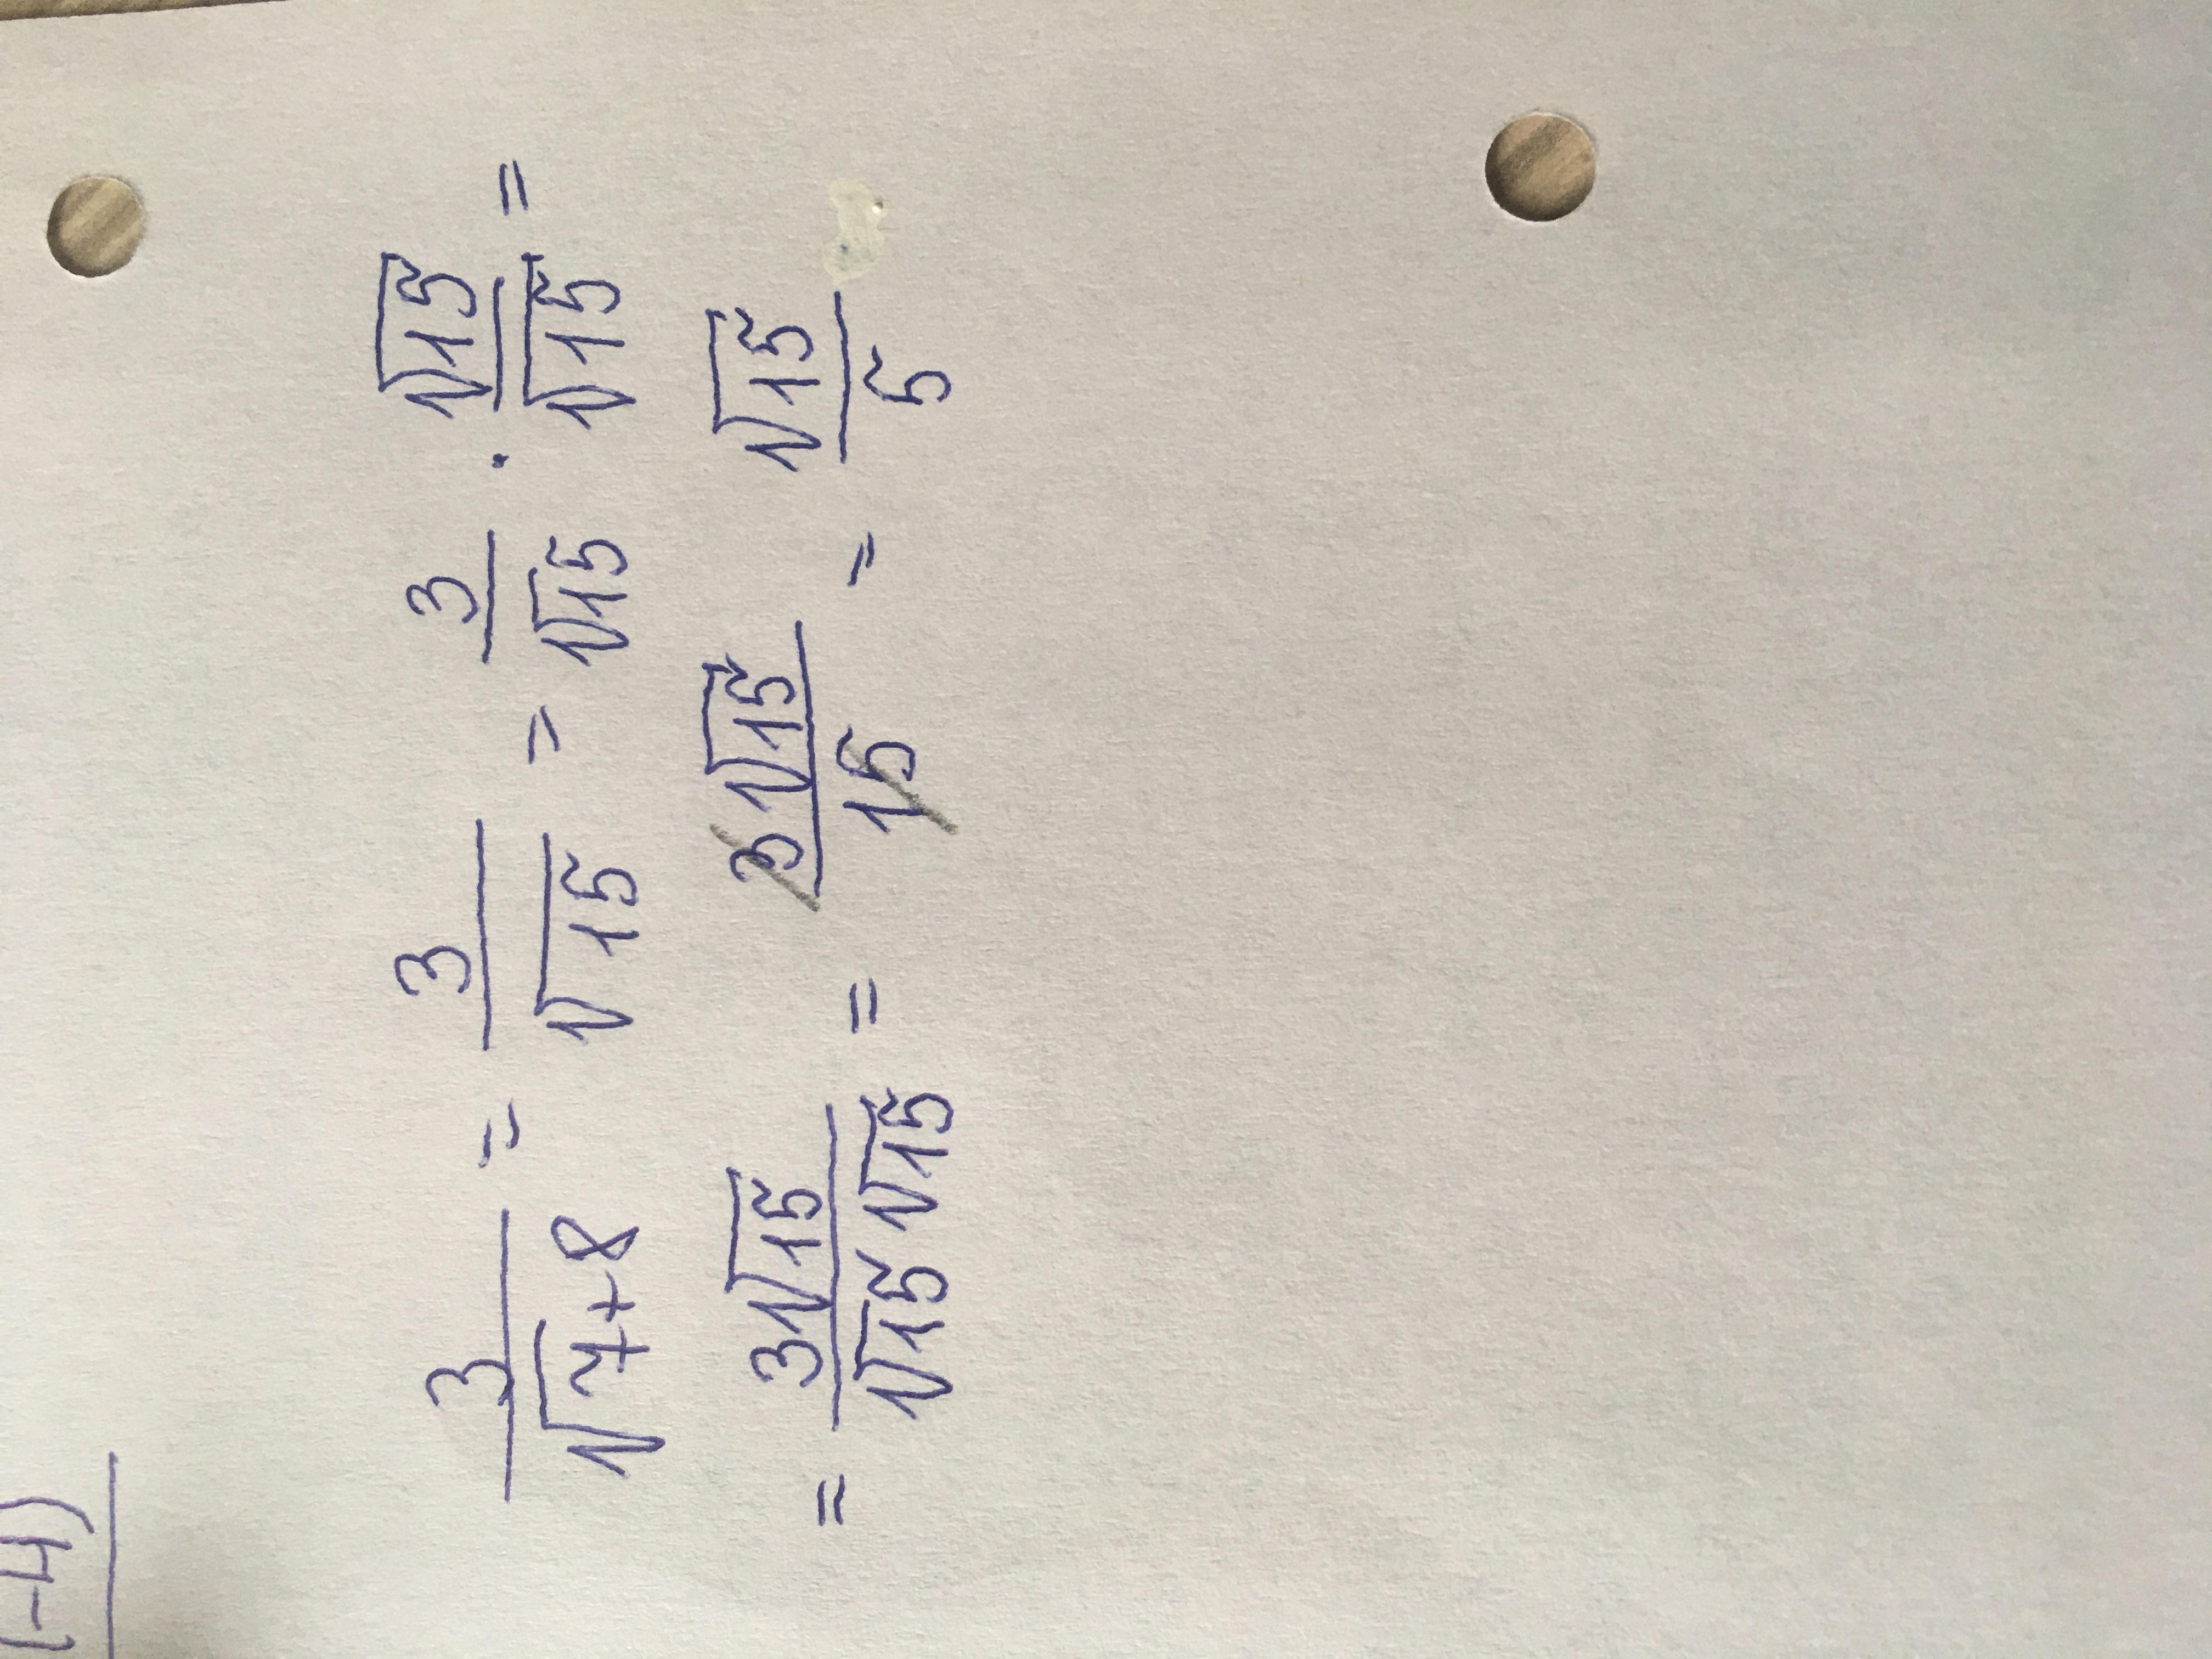 (-4)
3/√7+8 = 3/√15 = 3/√15 · √15/√15 =
= 3√15/√15 √15 = 3√15/15 = √15/5